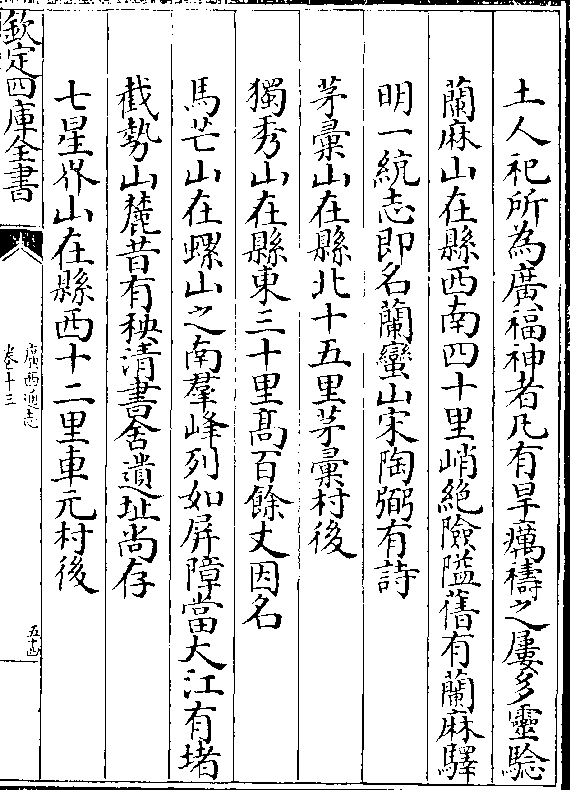 土人祀所為廣福神者凡有旱癘禱之屢多靈騐
蘭麻山在縣西南四十里峭絶險隘舊有蘭麻驛
明一統志即名蘭蠻山宋陶弼有詩
茅稾山在縣北十五里茅稾村後
獨秀山在縣東三十里髙百餘丈因名
馬芒山在螺山之南羣峰列如屏障當大江有堵
截勢山麓昔有秧清書舍遺址尚存
七星界山在縣西十二里車元村後
欽定四庫全書
廣西通志
卷十三
五十四